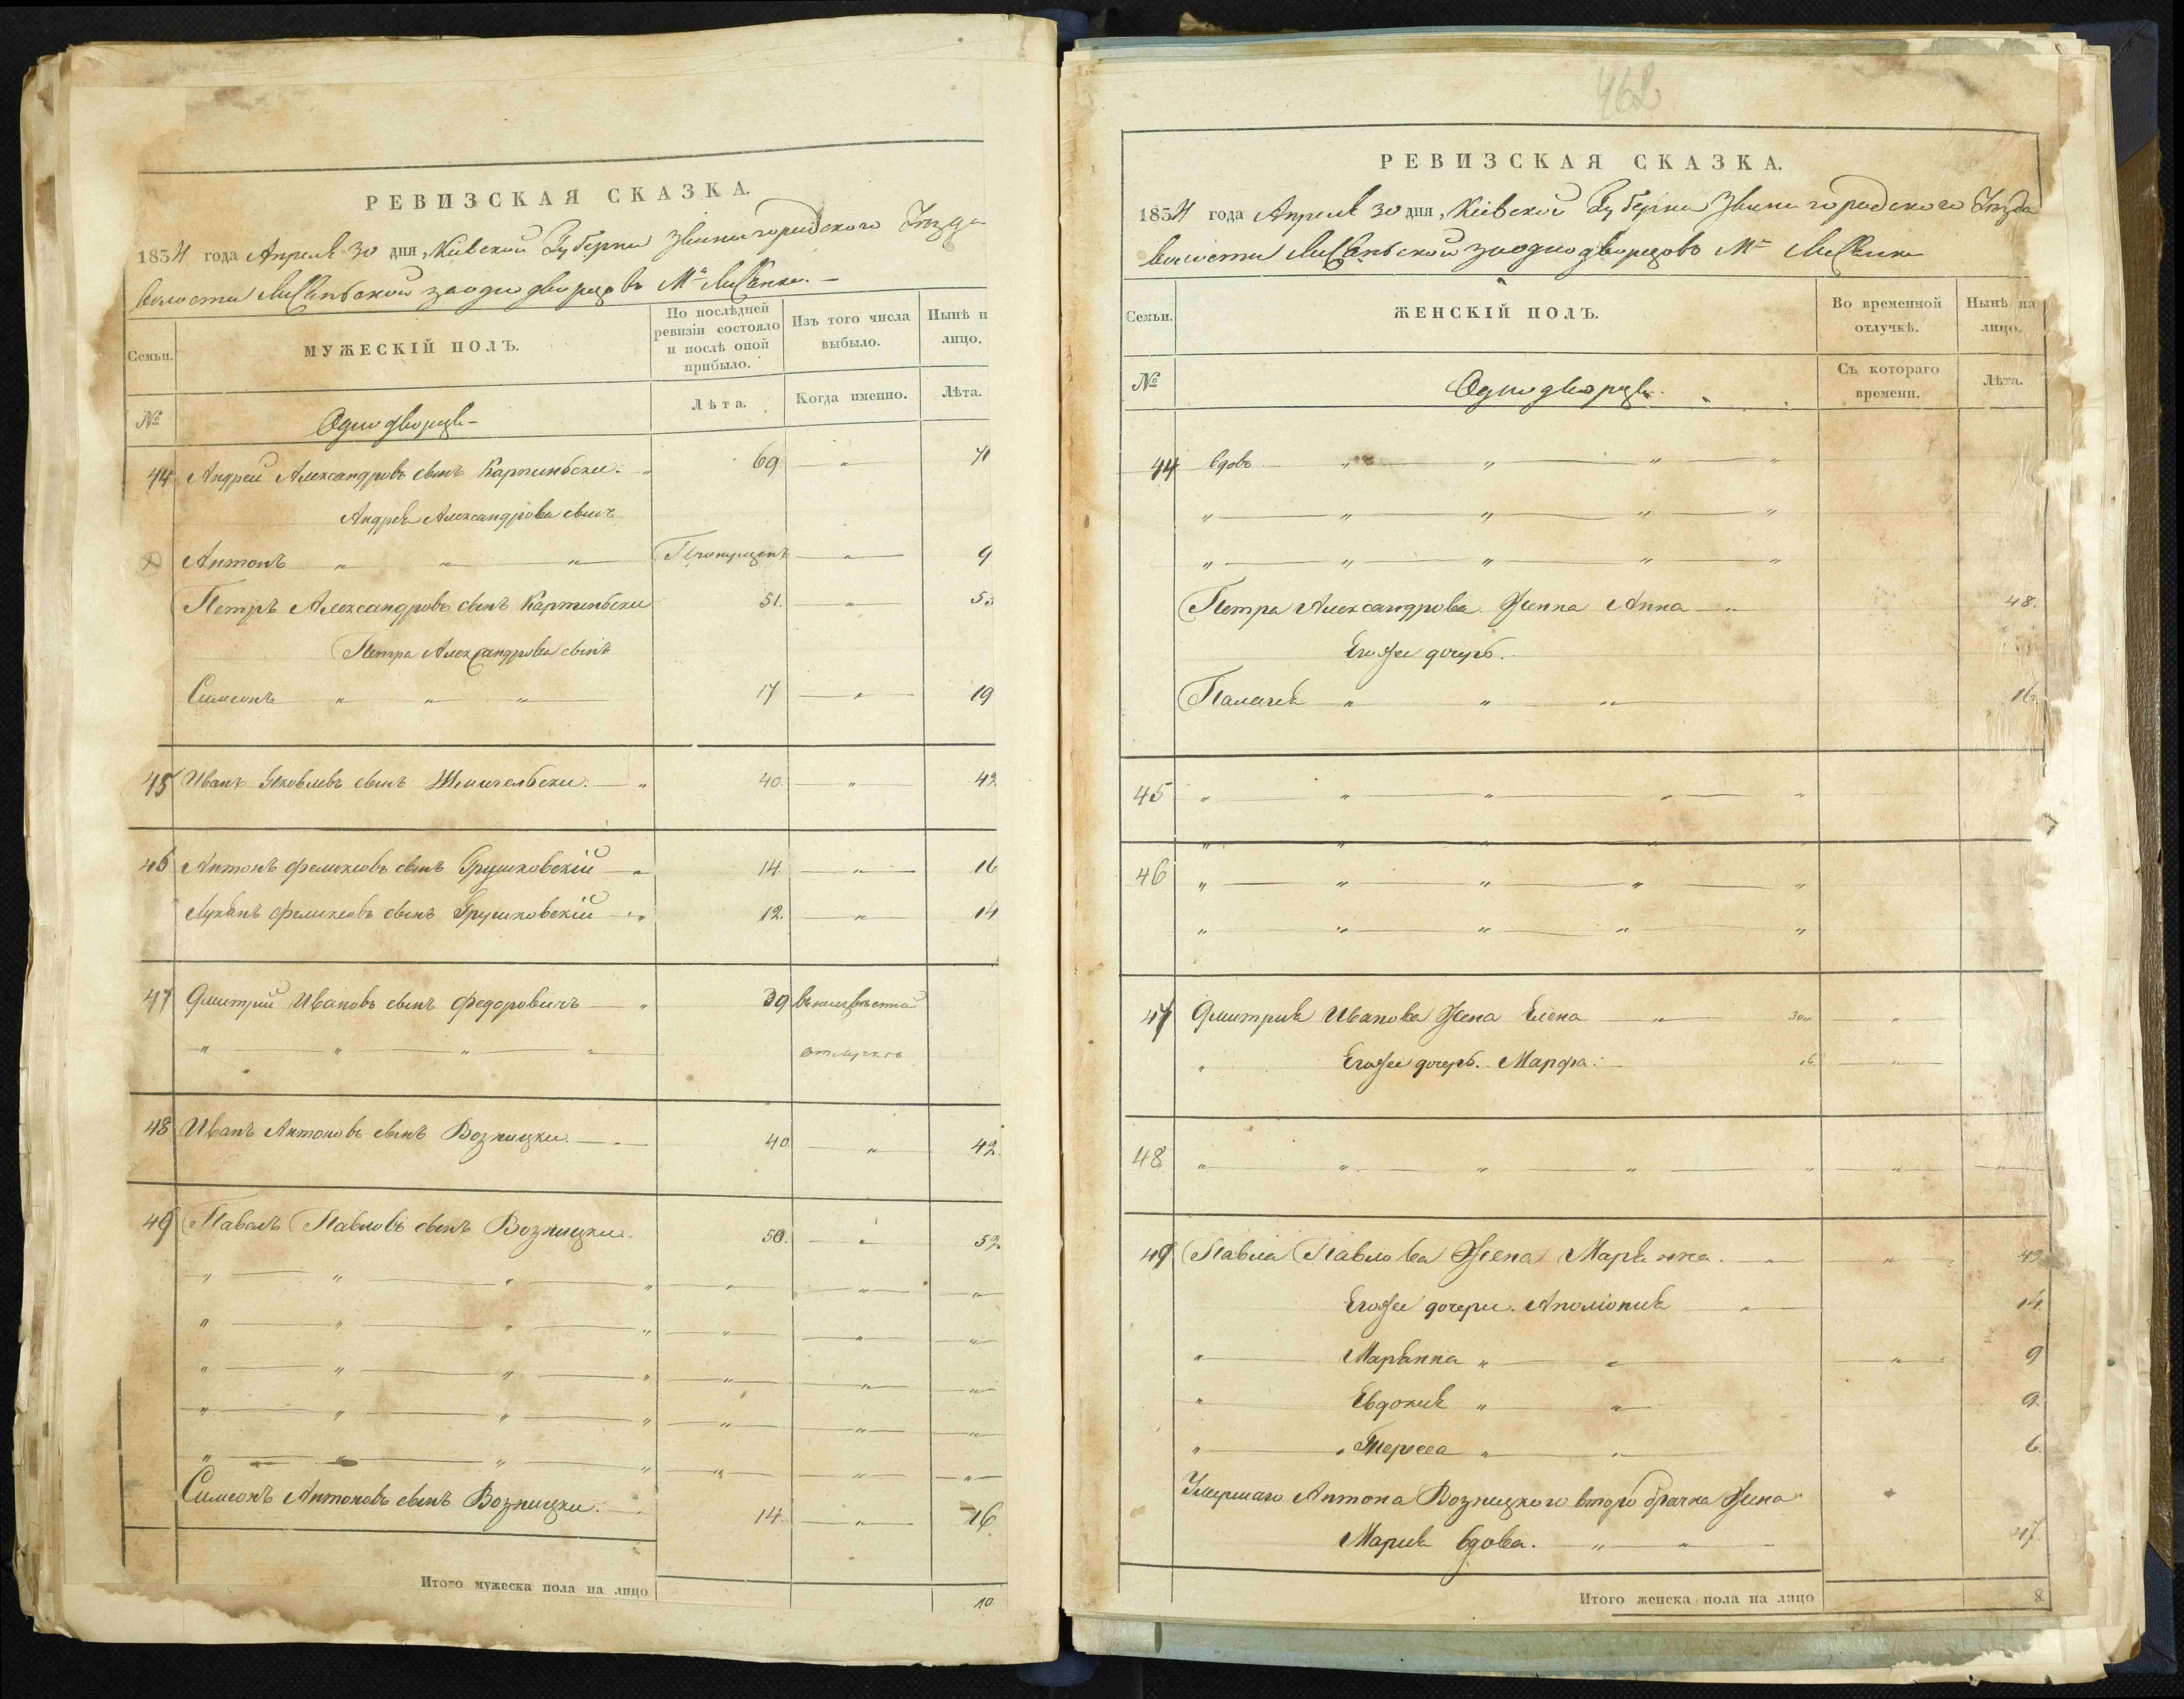 РЕВИЗСКАЯ СКАЗКА.
1854 года Апреля 30 дня, Кіевской Губерніи Звенигородскаго Уѣзда
волости Лисянской однодворцовъ Мѣ Лисянки. —
Семьи.
МУЖЕСКІЙ ПОЛЪ.
По послѣдней ревизіи состояло и послѣ оной прибыло.
Изъ того числа выбыло.
Нынѣ н лицо.
№
Однодворцы
Лѣта.
Когда именно.
Лѣта.
44 Андрей Александровъ сынъ Карпиньски. " 69 " 71
Андрея Александрова сынъ
Антонъ " " " Пропущенъ " 9
Петръ Александровъ сынъ Карпиньски 51. " 53
Петра Александрова сынъ
Симеонъ " " " 17 " 19
45 Иванъ Яковлевъ сынъ " 40. " 42.
46 Антонъ Феликсовъ сынъ Грушковскій " 14. " 16
Лукьянъ Феликсовъ сынъ Грушковскій " 12. " 14
47 Дмитрій Ивановъ сынъ Федоровичъ " 39 въ неизвѣстной
" " " " отлучкѣ
48 Иванъ Антоновъ сынъ Возницки. " 40 " 42.
49 Павелъ Павловъ сынъ Возницки. 50. " 52.
" " " " " " "
" " " " " " "
" " " " " " "
" " " " " " "
" " " " " " "
Симеонъ Антоновъ сынъ Возницки. " 14. " 16
Итого мужеска пола на лицо 10
462
РЕВИЗСКАЯ СКАЗКА.
1854 года Апреля 30 дня, Кіевской Губерніи Звенигородскаго Уѣзда
волости Лисянской однодворцовъ Мѣ Лисянки
Семьи.
ЖЕНСКІЙ ПОЛЪ.
Во временной отлучкѣ.
Нынѣ на лицо.
№
Однодворцы.
Съ котораго времени.
Лѣта.
44 вдовъ " " " "
" " " " "
" " " " "
Петра Александрова Женна Анна " 48.
Егоже дочерь.
Палагея " " " 16.
45 " " " " "
" " " " "
46 " " " " "
" " " " "
47 Дмитрия Иванова Жена Елена " 30 "
" Егоже дочерь. Марфа. 16. "
48. " " " " " " "
49 Павла Павлова Жена Марянна. " " 42
Егоже дочери. Аполіонія " 14
" Марянна " " " 9
" Евдокия " " 9.
" Тересса " " 6.
Умершаго Антона Возницкого второ брачна Жена
Мария вдова. " " 47.
Итого женска пола на лицо 8.